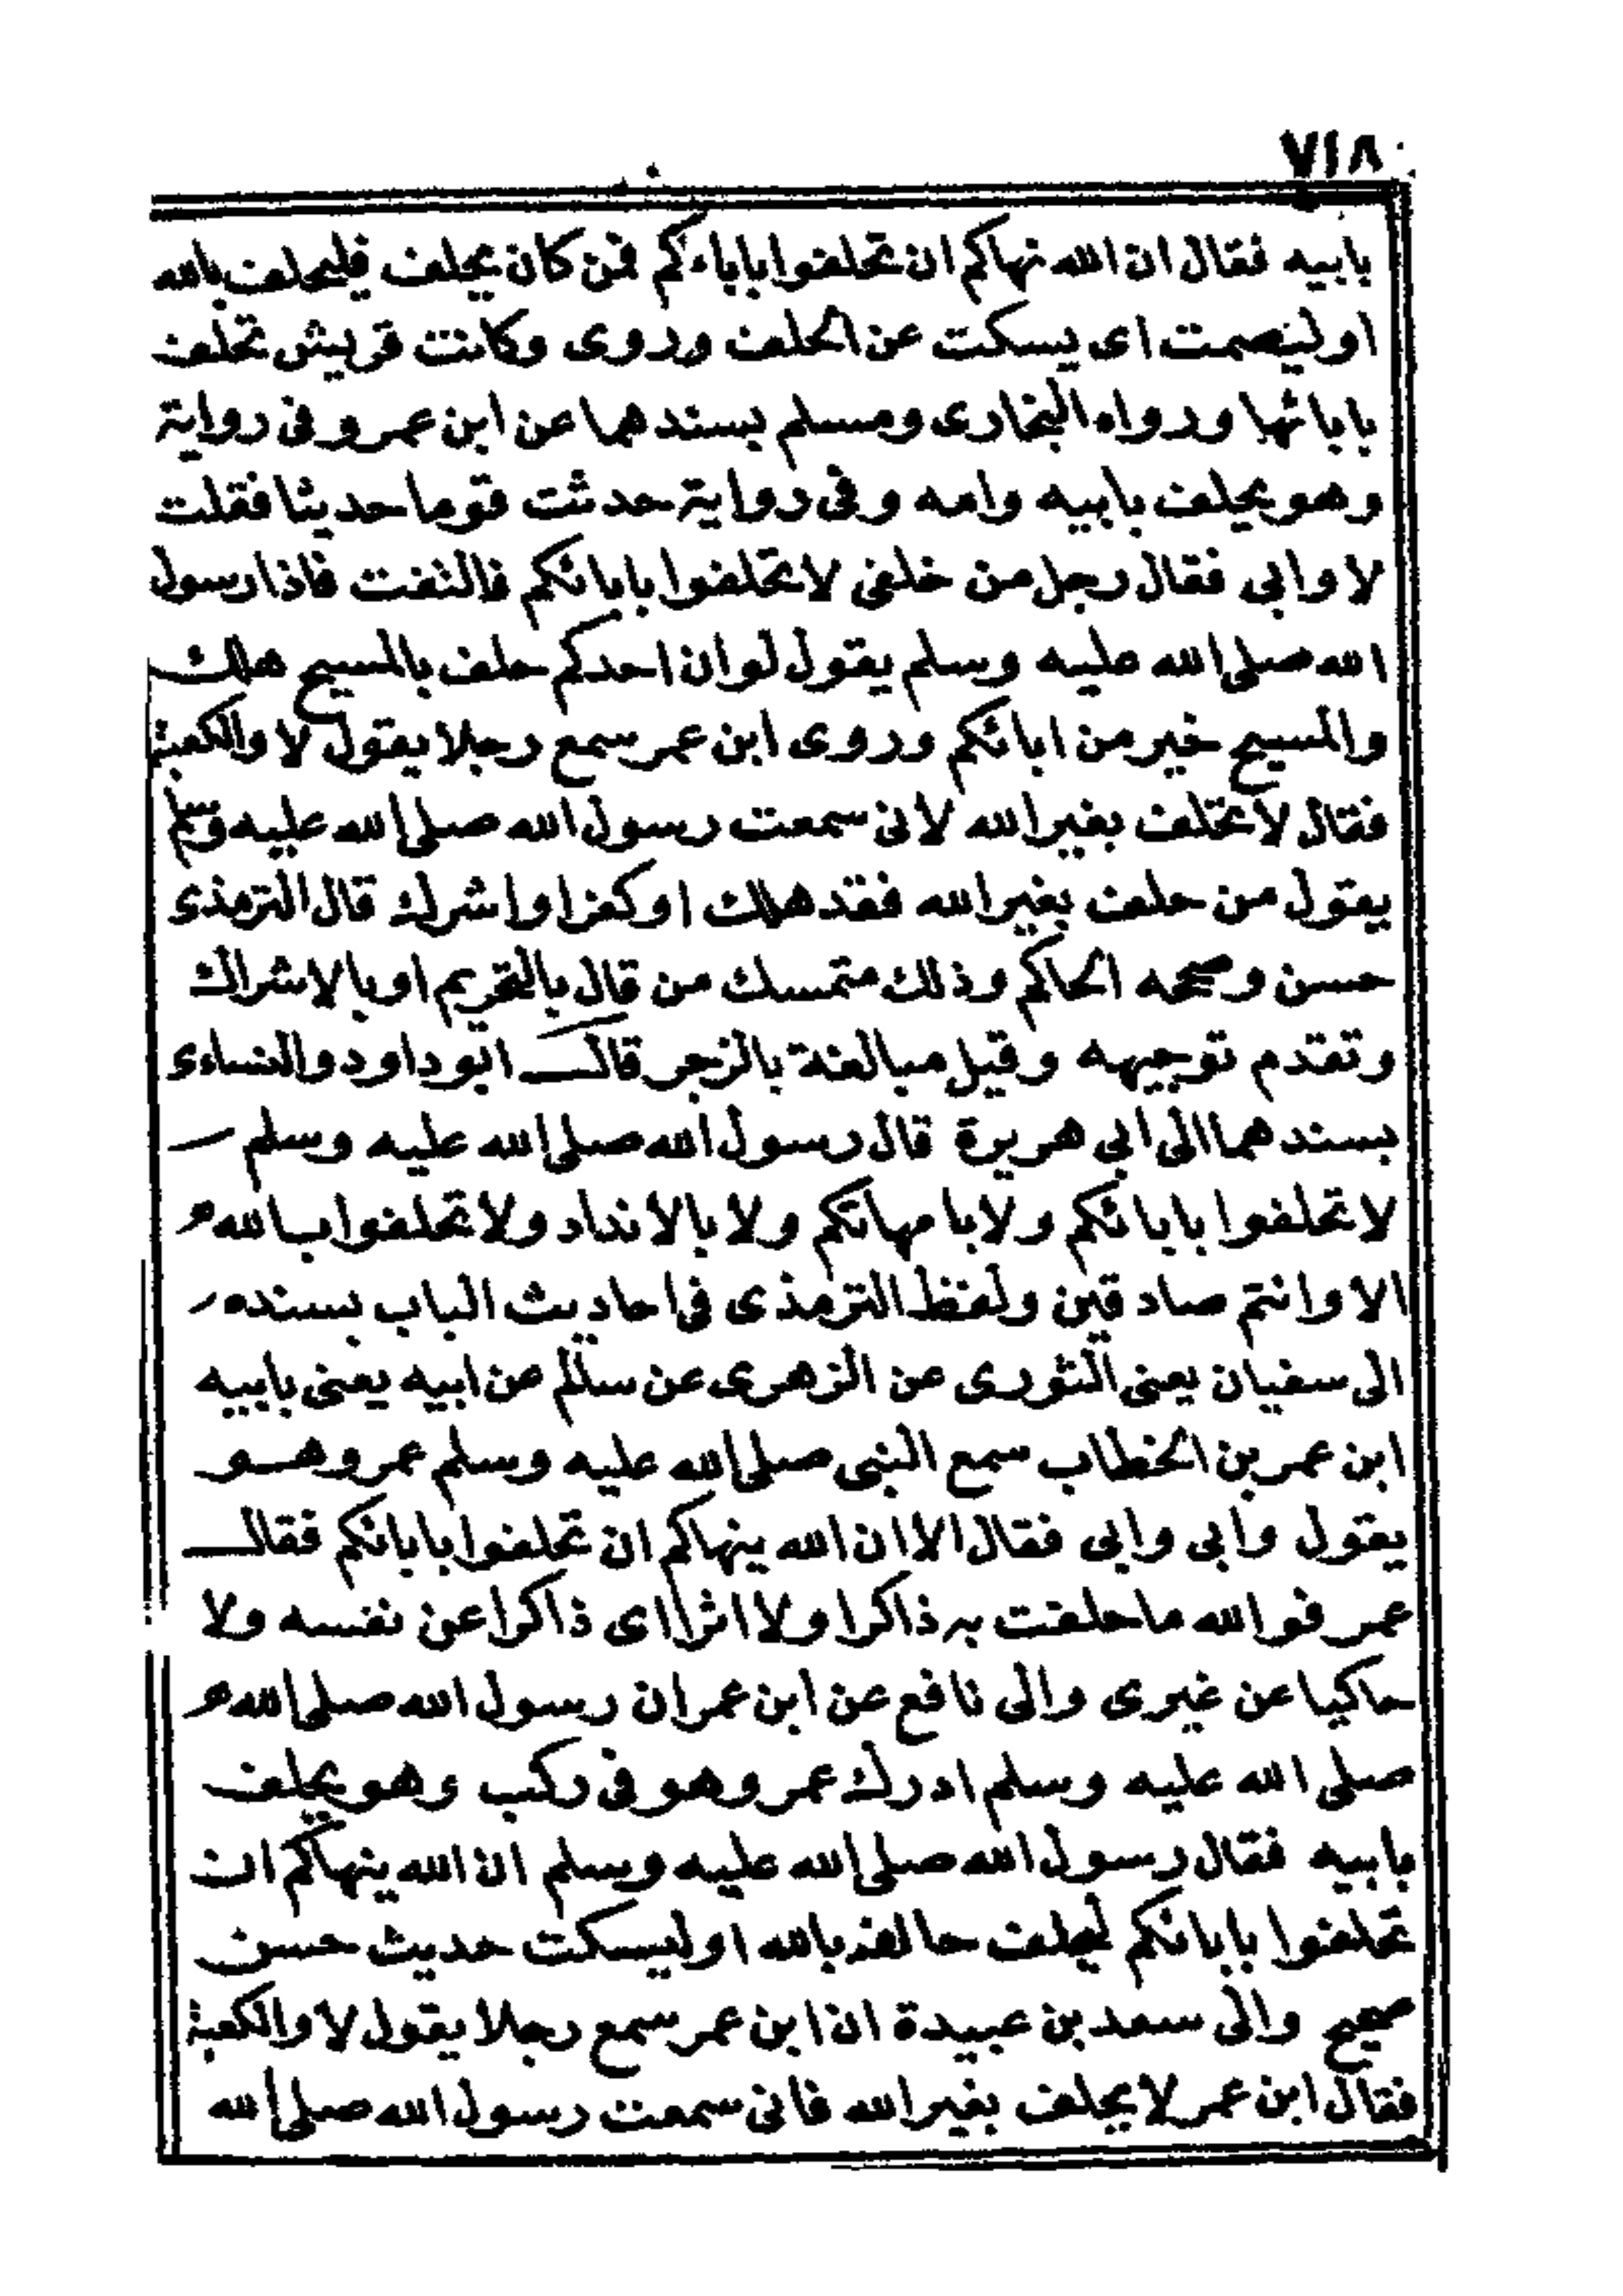 ٧١٨
بابيه فقال ان الله نهاكم ان تحلفوا باباءكم فمن كان يحلف فليحلف بالله
او ليصمت اى يسكت عن الحلف وروى وكانت قريش تحلف
بابائها ورواه البخارى ومسلم بسندهما عن ابن عمر وفى رواية
وهو يحلف بابيه وامه وفى رواية حدثت قوما حديثا فقلت
لا وابى فقال رجل من خلفى لا تحلفوا بابائكم فالتفت فاذا رسول
الله صلى الله عليه وسلم يقول لو ان احدكم حلف بالمسيح هلك
والمسيح خير من ابائكم وروى ابن عمر سمع رجلا يقول لا والكعبة
فقال لا تحلف بغير الله لانى سمعت رسول الله صلى الله عليه وسلم
يقول من حلف بغير الله فقد هلك او كفر او اشرك قال الترمذى
حسن وصححه الحاكم وذلك متمسك من قال بالتحريم او بالاشراك
وتقدم توجيهه وقيل مبالغة بالزجر قال ابو داود والنساءى
بسندهما الى ابى هريرة قال رسول الله صلى الله عليه وسلم
لا تحلفوا بابائكم ولا بامهاتكم ولا بالانداد ولا تحلفوا بالله
الا وانتم صادقين ولفظ الترمذى فى احاديث الباب بسنده
الى سفيان يعنى الثورى عن الزهرى عن سالم عن ابيه يعنى بابيه
ابن عمر بن الخطاب سمع النبى صلى الله عليه وسلم عمر وهو
يقول وابى وابى فقال الا ان الله ينهاكم ان تحلفوا بابائكم فقال
عمر فوالله ما حلفت به ذاكرا ولا اثرا اى ذاكرا عن نفسه ولا
حاكيا عن غيرى والى نافع عن ابن عمر ان رسول الله صلى الله
صلى الله عليه وسلم ادرك عمر وهو فى ركب وهو يحلف
بابيه فقال رسول الله صلى الله عليه وسلم ان الله ينهاكم ان
تحلفوا بابائكم ليحلف حالف بالله او ليسكت حديث حسن
صحيح والى سعد بن عبيدة ان ابن عمر سمع رجلا يقول لا والكعبة
فقال ابن عمر لا يحلف بغير الله فانى سمعت رسول الله صلى الله